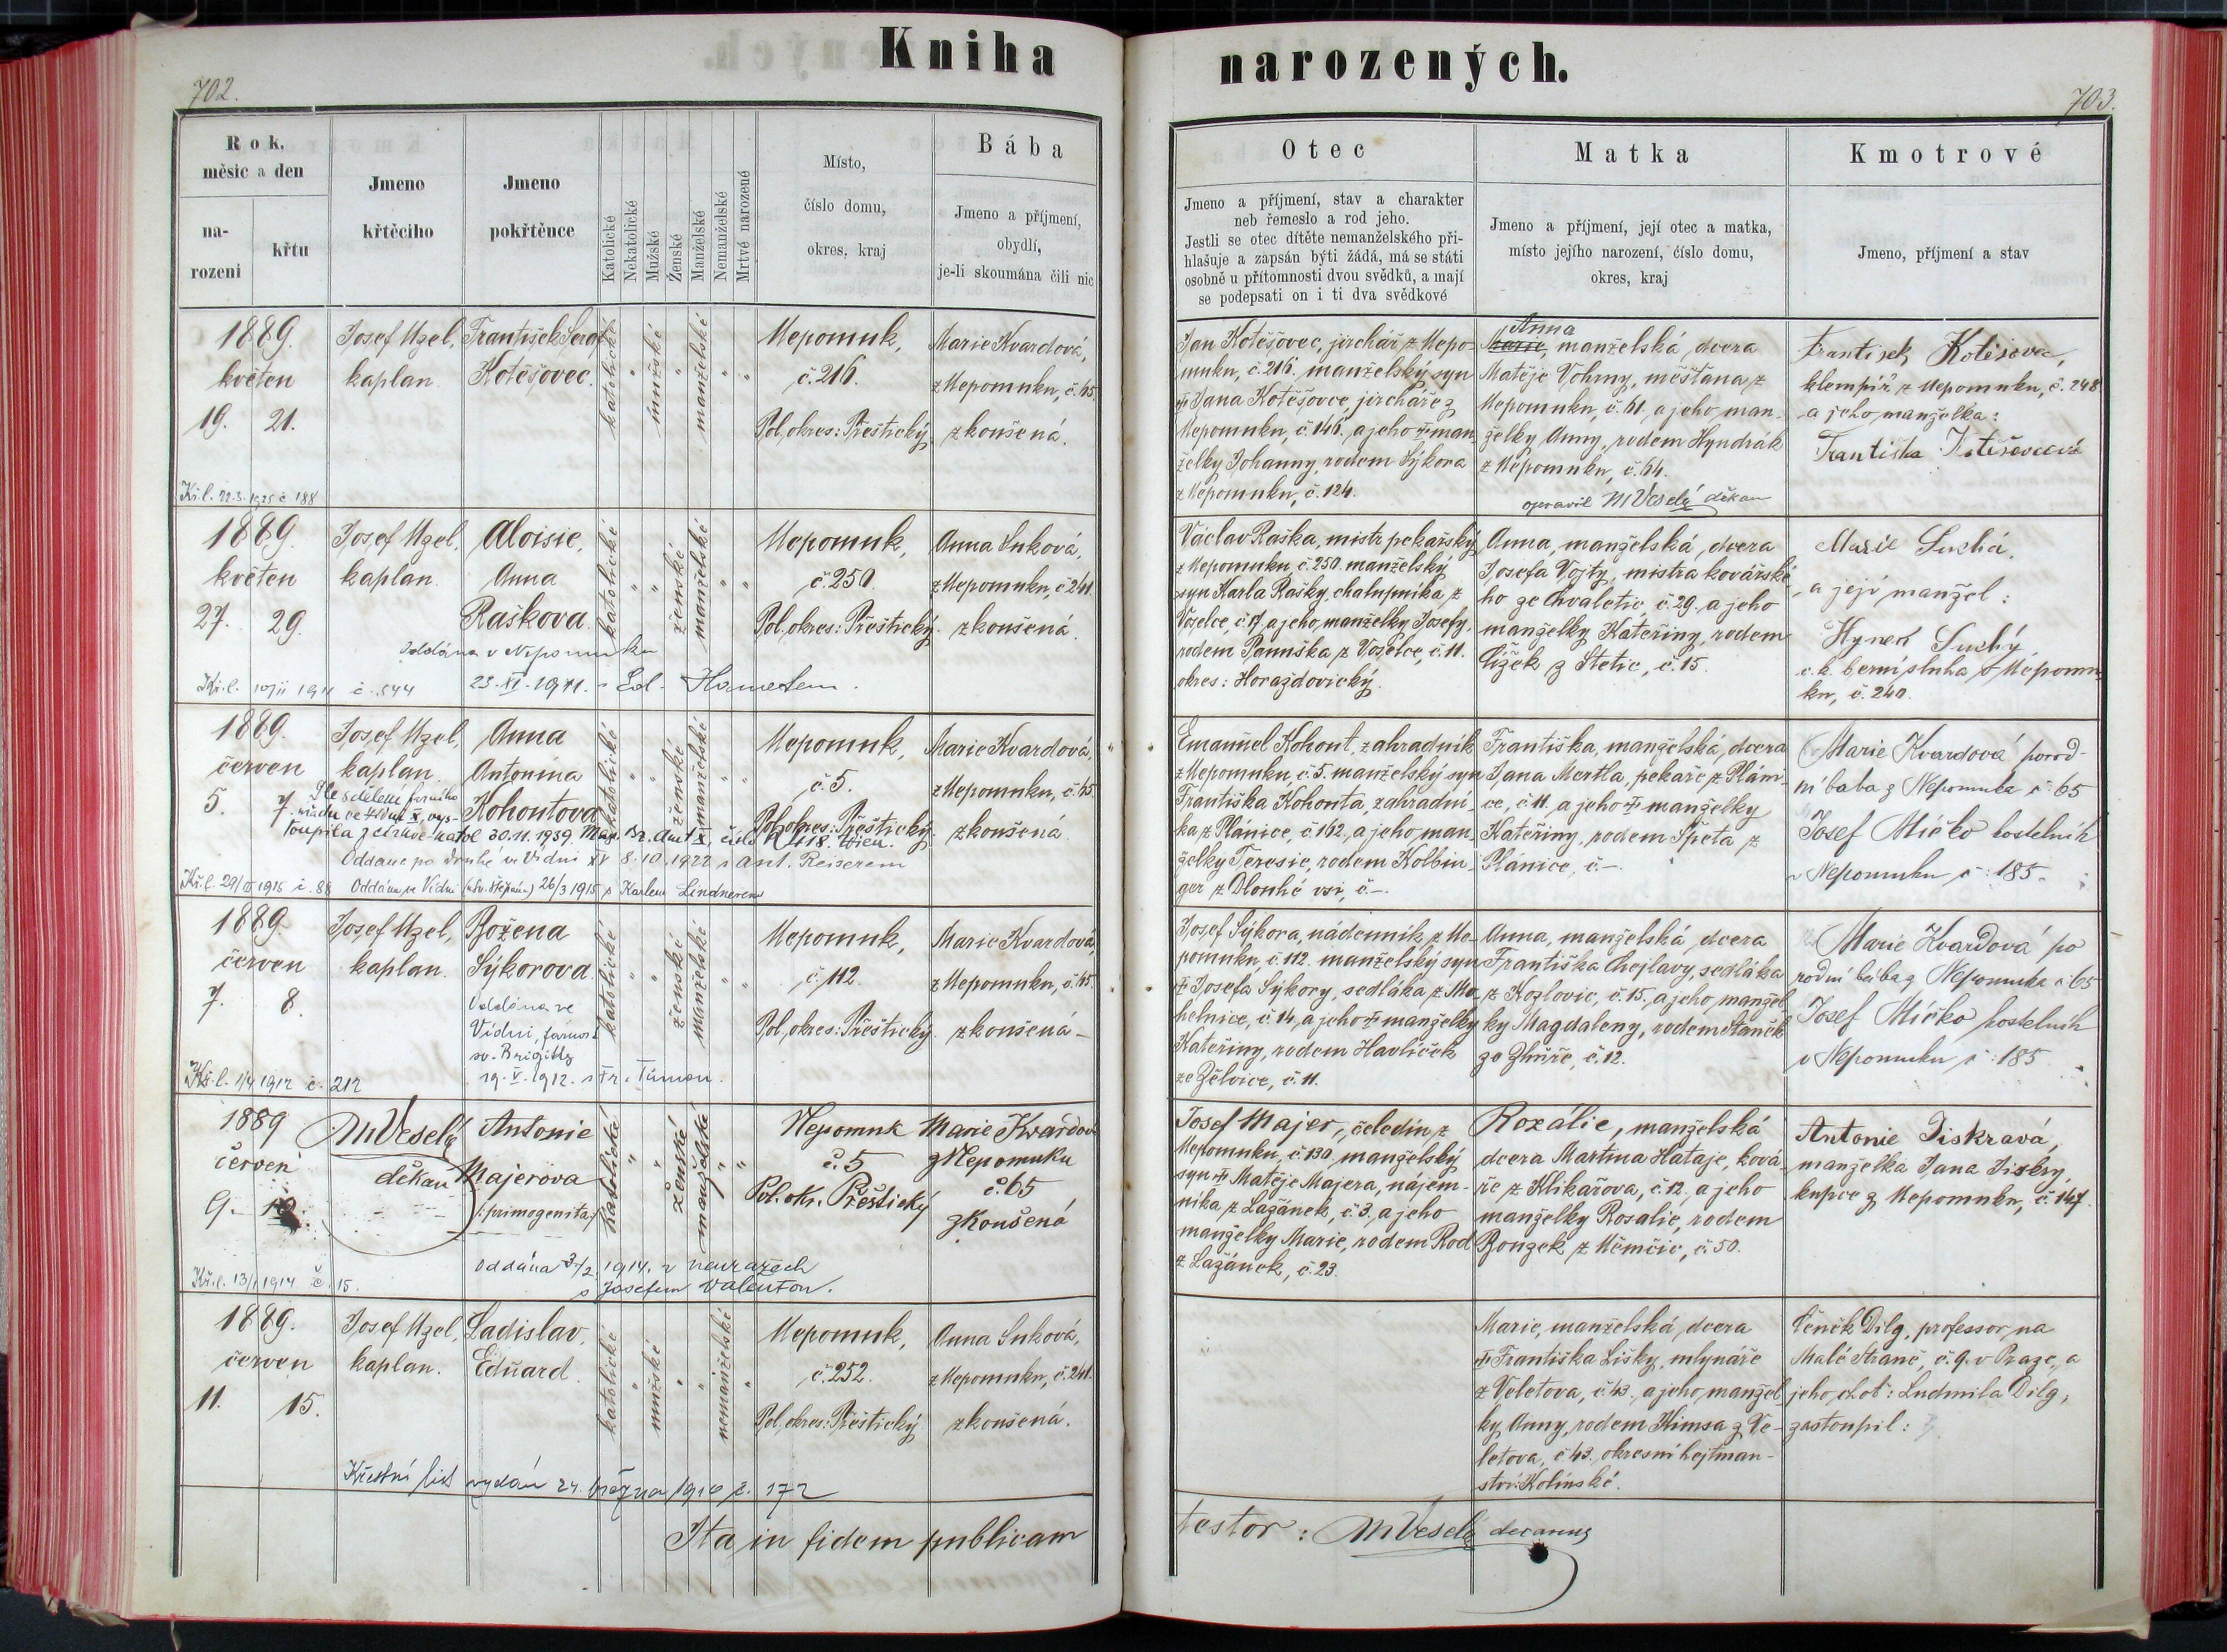 Kniha
narozených.
702.
703.
Rok,
měsíc a den
na-
rozeni
křtu
Jmeno
křtěcího
Jmeno
pokřtěnce
Katolické
Nekatolické
Mužské
Ženské
Manželské
Nemanželské
Mrtvé narozené
Místo,
číslo domu,
okres, kraj
Bába
Jmeno a příjmení,
obydlí,
je-li skoumána čili nic
Otec
Jmeno a příjmení, stav a charakter
neb řemeslo a rod jeho.
Jestli se otec dítěte nemanželského při-
hlašuje a zapsán býti žádá, má se státi
osobně u přítomnosti dvou svědků, a mají
se podepsati on i ti dva svědkové
Matka
Jmeno a příjmení, její otec a matka,
místo jejího narození, číslo domu,
okres, kraj
Kmotrové
Jmeno, příjmení a stav
1889.
květen
19. 21.
Kř. l. 22.3. 1925 č 188
Josef Uzel,
kaplan.
František Seraf.
Kotěšovec.
katolické
mužské
manželské
Nepomuk,
č. 216.
Pol. okres: Přeštický
Marie Kvardová,
z Nepomuku, č. 65.
zkoušená.
Jan Kotěšovec, jirchář z Nepo-
muku, č. 216. manželský syn
† Jana Kotěšovce, jircháře z
Nepomuku, č. 146. a jeho † man-
želky Johanny, rodem Sýkora
z Nepomuku, č. 124.
Anna
Marie, manželská dcera
Matěje Vohrny, měšťana z
Nepomuku, č. 61. a jeho man-
želky Anny, rodem Hyndrák
z Nepomuku, č. 64.
opravil M Veselý děkan
František Kotěšovec,
klempíř z Nepomuku, č. 248
a jeho manželka:
Františka Kotěšovcová
1889.
květen
27. 29.
Kř. l. 10/11 1911 č. 544
Josef Uzel,
kaplan.
Aloisie,
Anna
Raškova.
Oddána v Nepomuku
23. XI. 1911. s Ed. Hametem.
katolické
ženské
manželské
Nepomuk,
č. 250.
Pol. okres: Přeštický.
Anna Suková,
z Nepomuku, č 241.
zkoušená.
Václav Raška, mistr pekařský
z Nepomuku, č. 250. manželský
syn Karla Rašky, chalupníka z
Voselce, č. 17. a jeho manželky Josefy,
rodem Pauuška z Voselce, č. 11.
okres: Horažďovický.
Anna, manželská dcera
Josefa Vojty, mistra kovářské-
ho ze Chvaletic, č. 29. a jeho
manželky Kateřiny, rodem
Čížek z Štětic, č. 15.
Marie Suchá,
a její manžel:
Hynek Suchý,
c. k. berní sluha v Nepomu-
ku, č. 240.
1889.
červen
5. 7.
Josef Uzel,
kaplan.
Anna
Antonína
Kohoutova
Dle sdělení farního
úřadu ve Vídni X, vys-
toupila z církve katol 30.11.1939 Mag. Bz. Amt X, číslo R 418. Wien.
Oddána po druhé ve Vídni XV 8.10.1922 s Ant. Reiserem
Kř. l. 29/I 1915 č. 88 Oddána ve Vídni (u sv. Štěpána) 26/3 1915 s Karlem Lindnerem
katolické
ženské
manželské
Nepomuk,
č. 5.
Pol. okres: Přeštický.
Marie Kvardová,
z Nepomuku, č. 65.
zkoušená
Emanuel Kohout, zahradník
z Nepomuku, č. 5. manželský syn
Františka Kohouta, zahradní-
ka z Plánice, č. 162. a jeho man-
želky Teresie, rodem Kolbin-
ger z Dlouhé vsi, č –.
Františka, manželská dcera
Jana Mertla, pekaře z Pláni-
ce, č. 11. a jeho † manželky
Kateřiny, rodem Špeta z
Plánice, č. –.
Marie Kvardová porod-
ní baba z Nepomuka č. 65
Josef Mičko kostelník
v Nepomuku č: 185.
1889.
červen
7. 8.
Kř. l. 1/4 1912 č. 212
Josef Uzel,
kaplan.
Božena
Sýkorova.
Oddána ve
Vídni, farnost
sv. Brigitty
19. V. 1912. s Fr. Tůmou.
katolické
ženské
manželské
Nepomuk,
č. 112.
Pol. okres: Přeštický.
Marie Kvardová,
z Nepomuku, č. 65.
zkoušená –
Josef Sýkora, nádenník z Ne-
pomuku, č. 112. manželský syn
† Josefa Sýkory, sedláka z Mo-
helnice, č. 14. a jeho † manželky
Kateřiny, rodem Havlíček
ze Želvice, č. 11.
Anna, manželská dcera
Františka Chejlavy, sedláka
z Kozlovic, č. 15. a jeho manžel-
ky Magdaleny, rodem Staněk
ze Zhůře, č. 12.
Marie Kvardová po
rodní bába z Nepomuka č. 65
Josef Mičko kostelník
v Nepomuku č: 185
1889
červen
9. 10.
Kř. l. 13/1 1914 č. 15.
M Veselý
děkan
Antonie
Majerova
/: primogenita :/
oddána 3/2 1914. v
s Josefem Valenton.
katolické
ženské
manželské
Nepomuk
č. 5
Pol. okr. Přeštický
Marie Kvardová
z Nepomuku
č. 65
zkoušená
Josef Majer, čeledín z
Nepomuku, č. 130. manželský
syn † Matěje Majera, nájem-
níka z Lažánek, č. 3. a jeho
manželky Marie, rodem Rod
z Lažánek, č. 23.
Rozálie, manželská
dcera Martina Hataje, ková-
ře z Klikařova, č. 12. a jeho
manželky Rosalie, rodem
Bouzek z Němčic, č. 50.
Antonie Jiskravá,
manželka Jana Jiskry,
kupce z Nepomuku, č. 147.
1889.
červen
11. 15.
Josef Uzel,
kaplan.
Ladislav,
Eduard.
katolické
mužské
nemanželské
Nepomuk,
č. 252.
Pol. okres: Přeštický
Anna Suková,
z Nepomuku, č. 241.
zkoušená.
Křestní list vydán 24. března 1910 č. 172
Marie, manželská dcera
† Františka Lišky, mlynáře
z Veletova, č. 43. a jeho manžel-
ky Anny, rodem Kimsa z Ve-
letova, č. 43. okresní hejtman-
ství: Kolínské.
Čeněk Dilg, professor na
Malé straně, č. 9. v Praze, a
jeho choť: Ludmila Dilg,
zastoupil:
Ita in fidem publicam
testor: M Veselý decanus